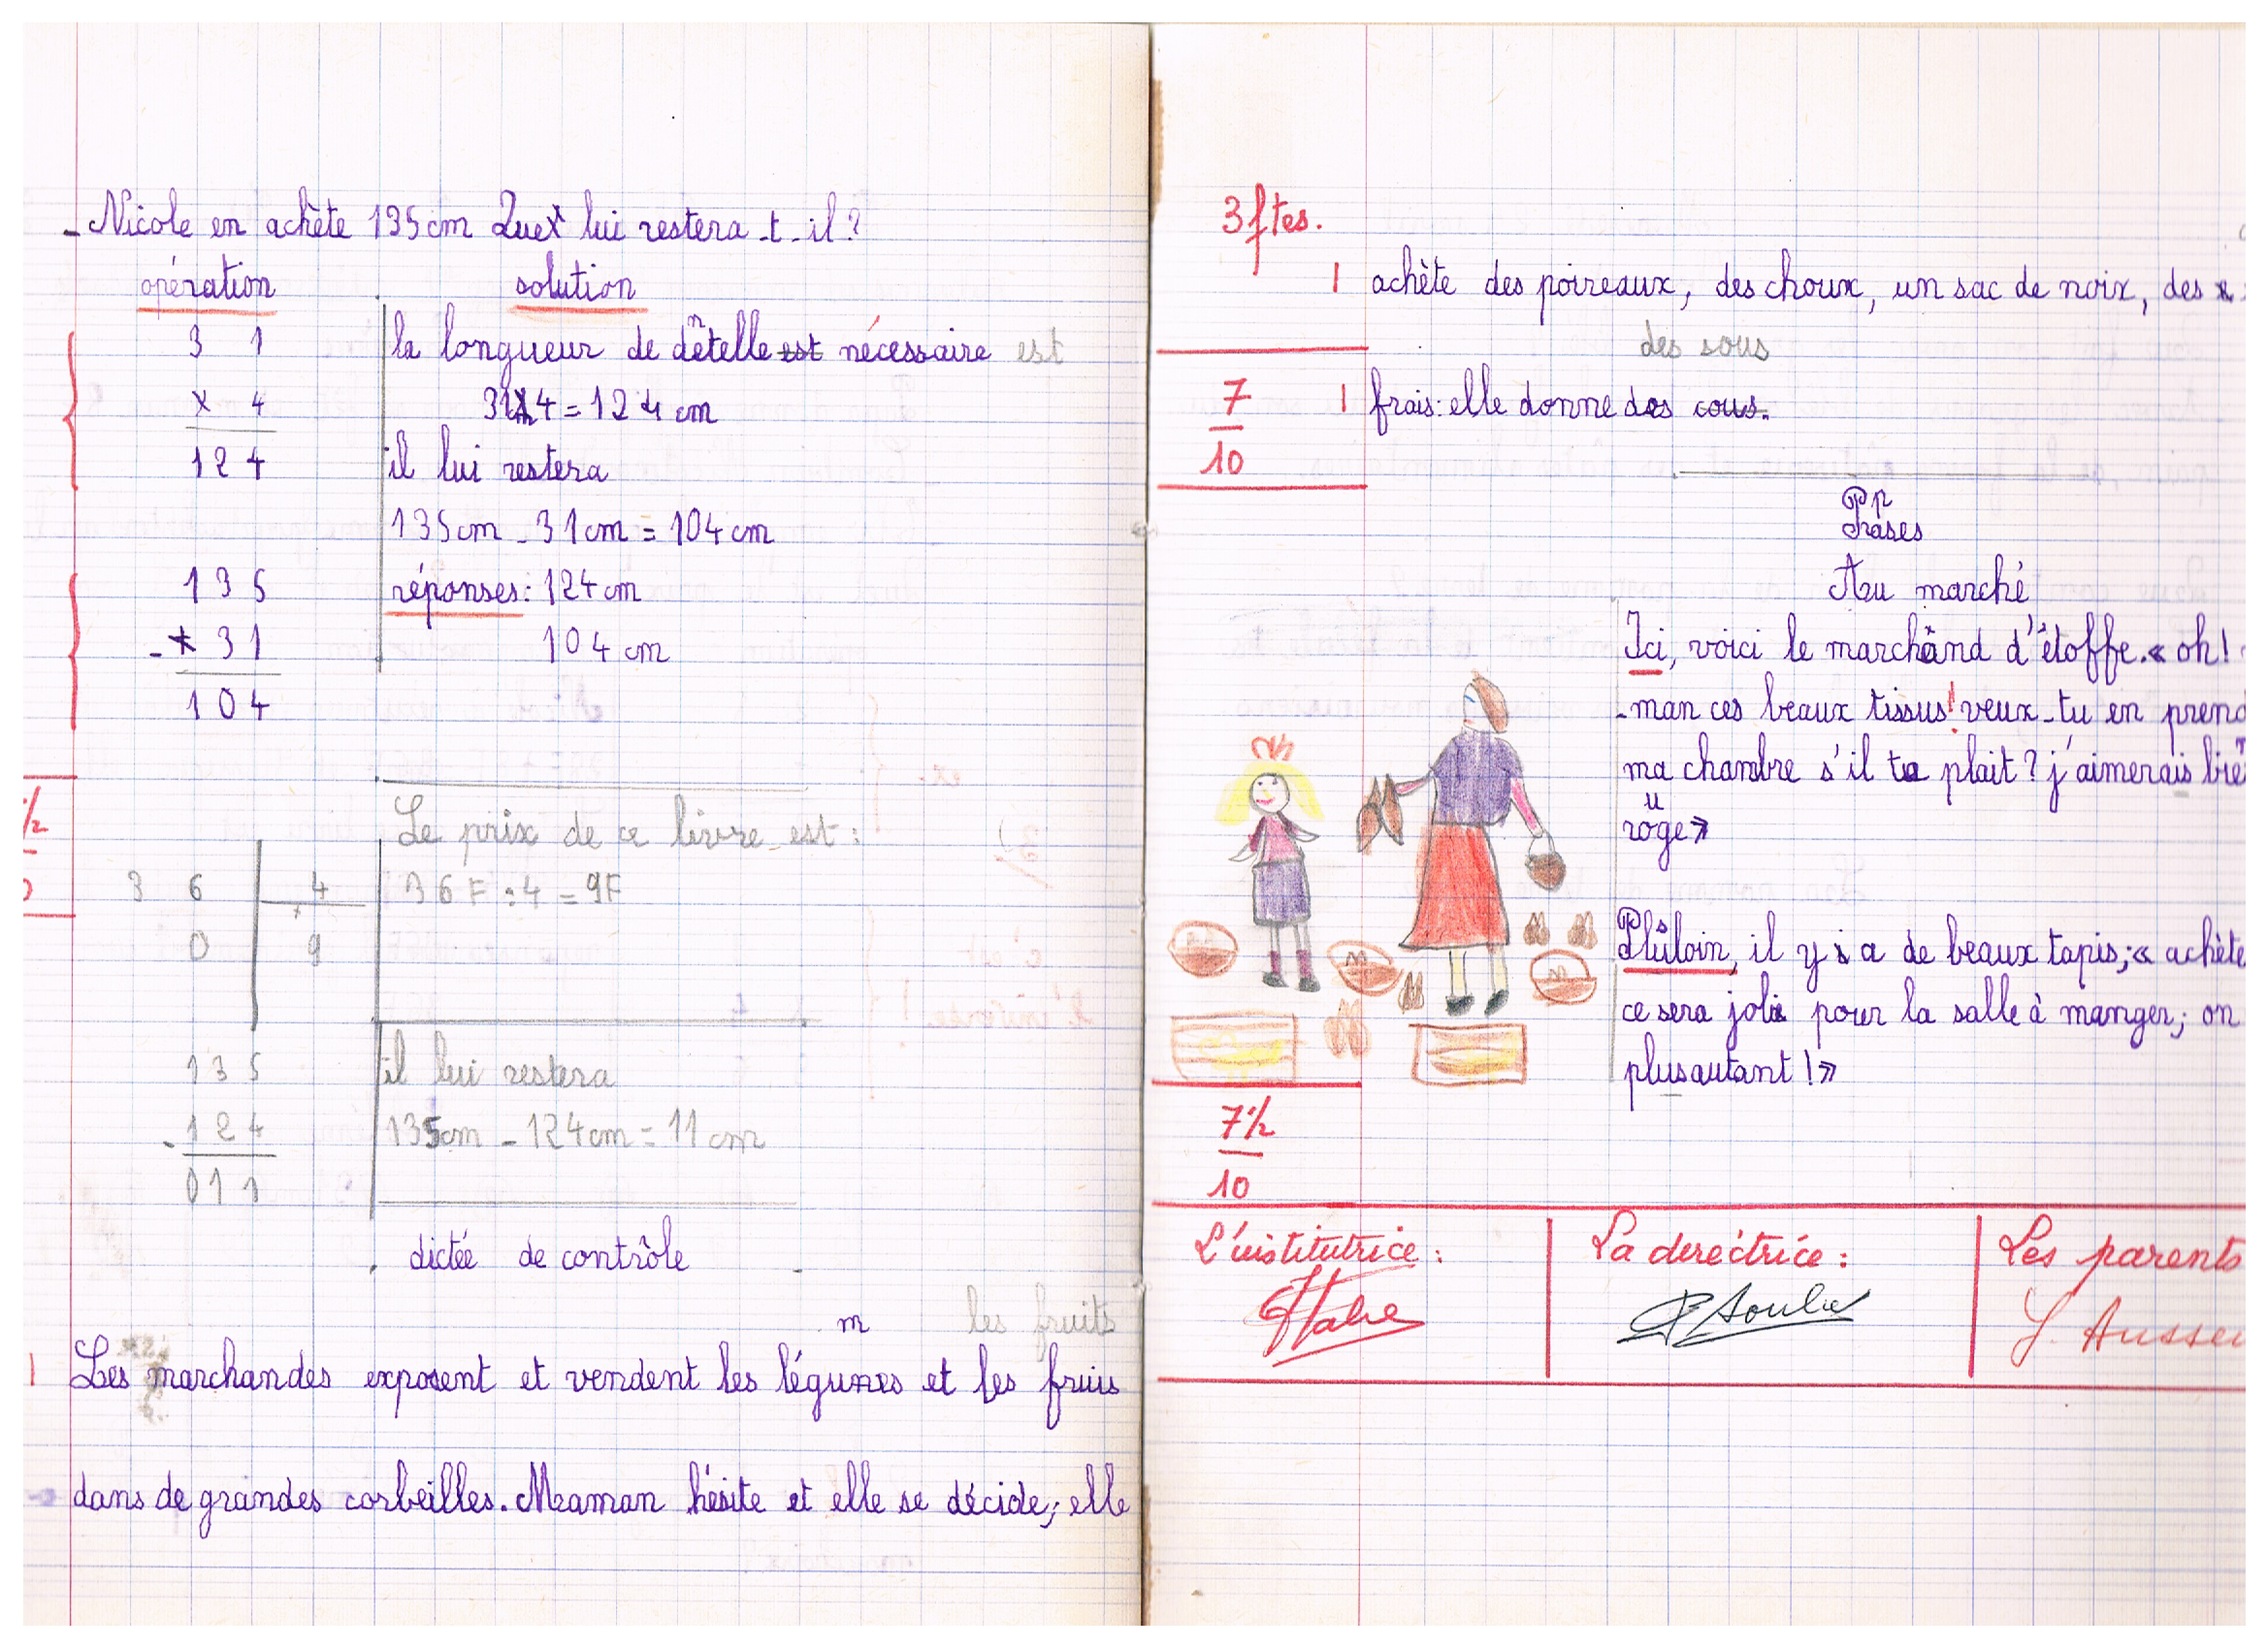 - Nicole en achète 135 cm Que lui restera-t-il?
opération
solution
3 1
x 4
124
la longueur de dentelle est nécessaire est
31 x 4 = 124 cm
il lui restera
135cm - 31cm = 104 cm
135
- 31
104
réponses: 124 cm
104 cm
1/2
Le prix de ce livre est:
3 6 4
0 9
36F : 4 = 9F
135
- 124
011
il lui restera
135cm - 124cm = 11 cm
dictée de contrôle
m les fruits
1 Les marchandes exposent et vendent les légumes et les fruis
dans de grandes corbeilles. Maman hésite et elle se décide; elle
3 ftes.
1 achète des poireaux, des choux, un sac de noix, des
des sous
1 frais: elle donne des cous.
7
10
P p
Prases
Au marché
Ici, voici le marchand d'étoffe. « oh!
-man ces beaux tissus! veux-tu en prend
ma chambre s'il te plait? j'aimerais bie
u
roge »
Plus loin, il y a de beaux tapis; « achète
ce sera joli pour la salle à manger; on
plus autant! »
7 1/2
10
L'institutrice:
La derectrice:
Les parents
P Soulie
J. Ausse